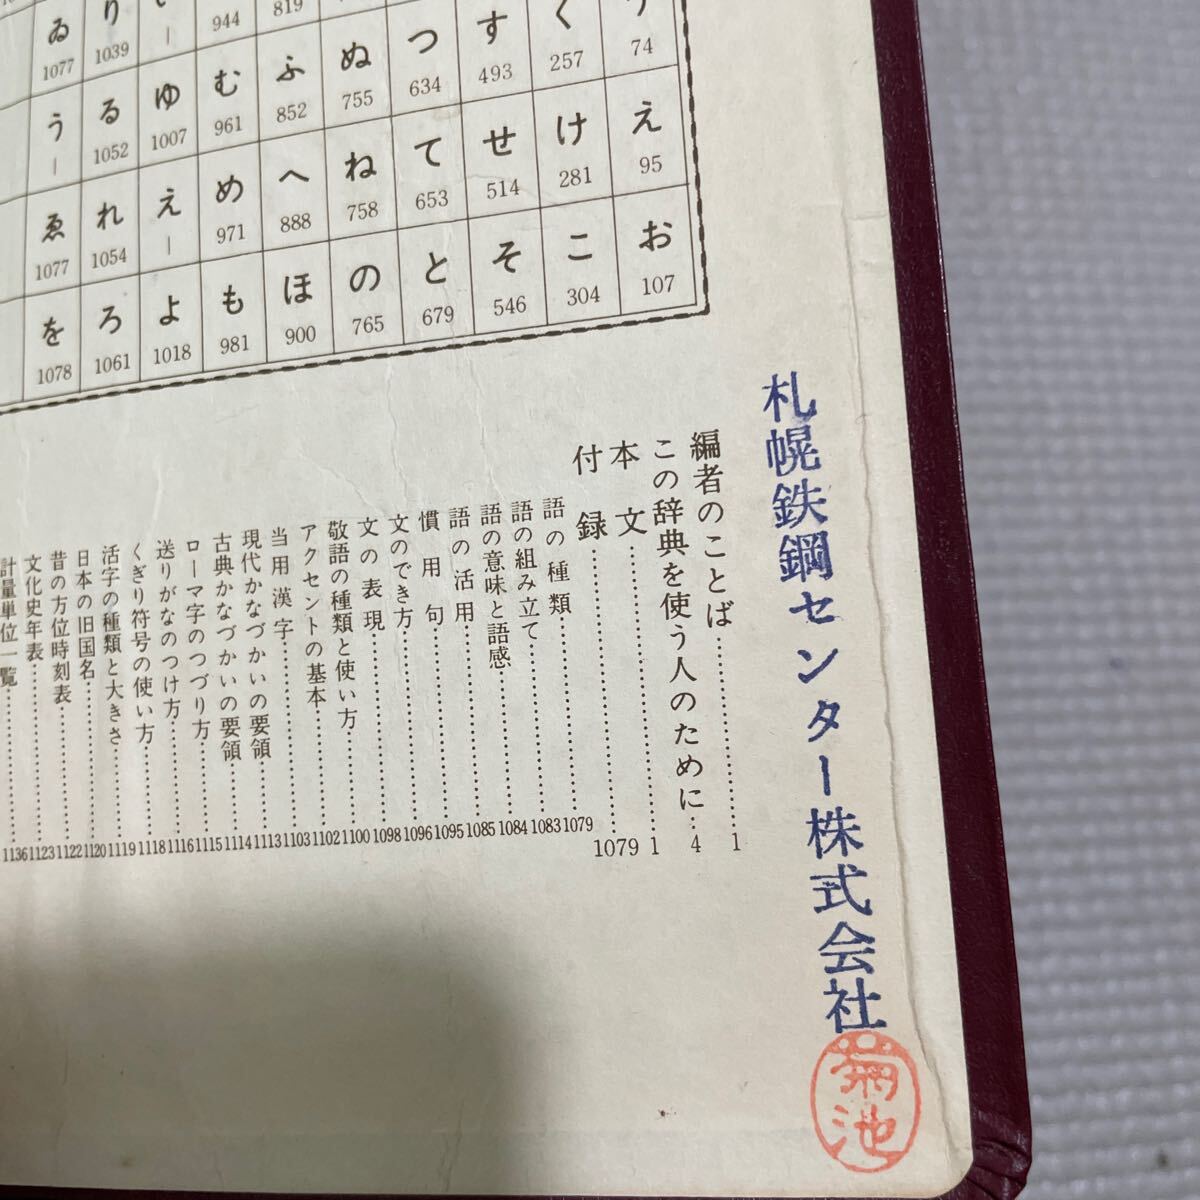 り
944
819
ゐ
1077
1039
ふ
852
ぬ
755
つ
634
す
493
く
257
74
う
ー
る
1052
ゆ
1007
む
961
ゑ
1077
れ
1054
え
ー
め
971
へ
888
ね
758
て
653
せ
514
け
281
え
95
を
1078
ろ
1061
よ
1018
も
981
ほ
900
の
765
と
679
そ
546
こ
304
お
107
札幌鉄鋼センター株式会社
菊池
編者のことば……1
この辞典を使う人のために…4
本文……1
付録……1079
語の種類……1079
語の組み立て……1083
語の意味と語感……1084
語の活用……1085
慣用句……1095
文のでき方……1096
文の表現……1098
敬語の種類と使い方……1100
アクセントの基本……1102
当用漢字……1103
現代かなづかいの要領……1113
古典かなづかいの要領……1114
ローマ字のつづり方……1115
送りがなのつけ方……1116
くぎり符号の使い方……1118
活字の種類と大きさ……1119
日本の旧国名……1120
昔の方位時刻表……1122
文化史年表……1123
計量単位一覧……1136